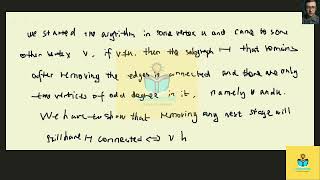 we started the algorithm in some vertex u and came to some
other vertex v, if v≠u. then the subgraph H that remains
after removing the edges is connected and there are only
two vertices of odd degree in it, namely v and u.
We have to show that removing any next stage will
still have H connected <=> v h